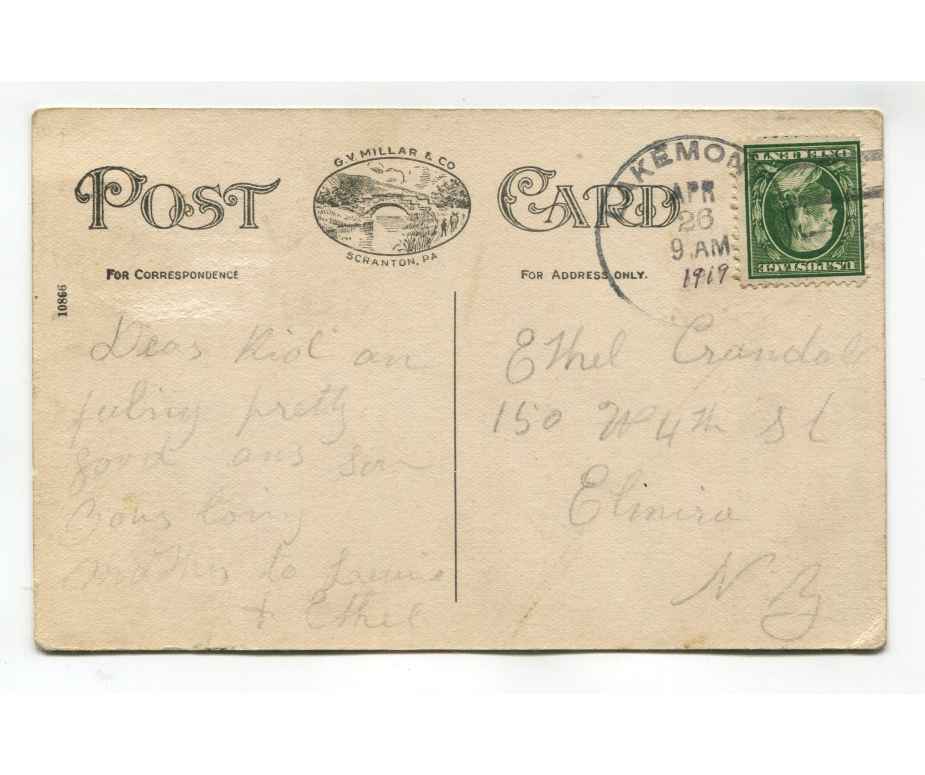 POST
G.V MILLAR & CO
SCRANTON, PA
CARD
FOR CORRESPONDENCE
FOR ADDRESS ONLY.
10866
KEMO
APR
26
9 AM
1919
ONE CENT
U.S. POSTAGE
Dear Kid an
pretty
good ans
Yours loving
mother to
& Ethel
Ethel Crandall
150 W 4th St
Elmira
N Y